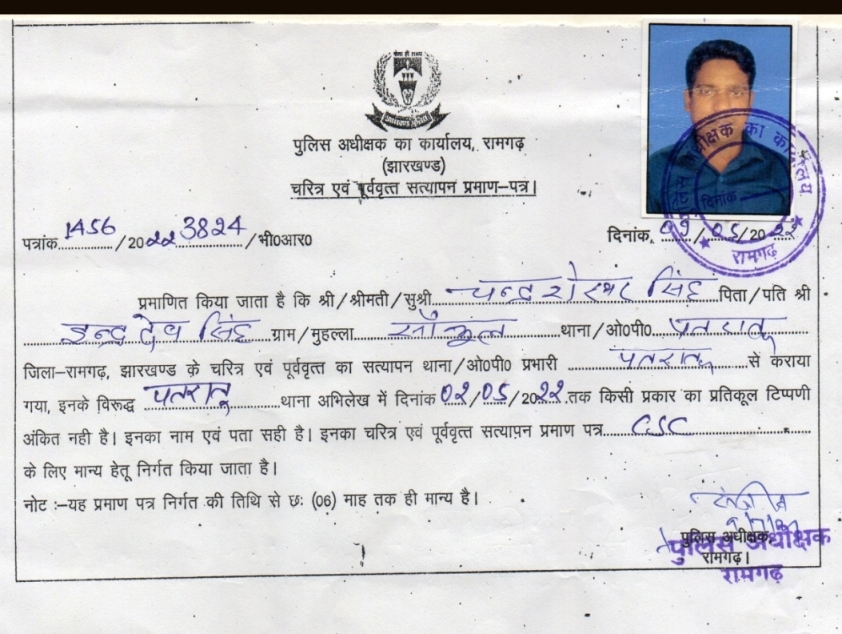 पुलिस अधीक्षक का कार्यालय, रामगढ़
(झारखण्ड)
चरित्र एवं पूर्ववृत्त सत्यापन प्रमाण-पत्र।
पत्रांक 1456 /2022 3824 /भी0आर0
दिनांक, 09/05/2022
प्रमाणित किया जाता है कि श्री/श्रीमती/सुश्री चन्द्र शेखर सिंह पिता/पति श्री
इन्द्र देव सिंह ग्राम/मुहल्ला थाना/ओ0पी0 पतरातू
जिला-रामगढ़, झारखण्ड के चरित्र एवं पूर्ववृत्त का सत्यापन थाना/ओ0पी0 प्रभारी पतरातू से कराया
गया, इनके विरूद्ध पतरातू थाना अभिलेख में दिनांक 02/05/2022 तक किसी प्रकार का प्रतिकूल टिप्पणी
अंकित नही है। इनका नाम एवं पता सही है। इनका चरित्र एवं पूर्ववृत्त सत्यापन प्रमाण पत्र CSC
के लिए मान्य हेतू निर्गत किया जाता है।
नोट :-यह प्रमाण पत्र निर्गत की तिथि से छः (06) माह तक ही मान्य है।
पुलिस अधीक्षक,
रामगढ़।
पुलिस अधीक्षक
रामगढ़